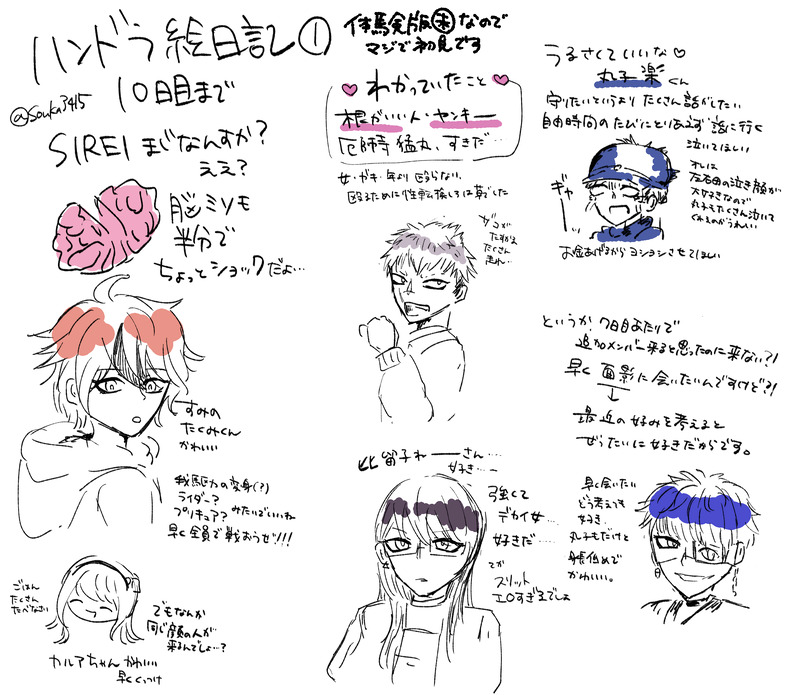 ハンドラ絵日記①
10日目まで
@souka3415
SIREIまじなんすか?
ええ?
脳ミソも
半分で
ちょっとショックだよ…
すみの
たくみくん
かわいい
我駆力の変身(?)
ライダー?
プリキュア??みたいでいいね
早く全員で戦おうぜ!!!
ごはん
たくさん
たべなさい
でもなんか
同じ顔の人が
来るんでしょ…?
カルアちゃんかわいい
早くくっつけ
体験版未なので
マジで初見です
わかっていたこと
根がいい人・ヤンキー
厄師寺猛丸、すきだ…
女・ガキ・年より殴らない、
殴るために性転換しろは草でした
ザコが
たくさん
比留子ねーさん…
好き…
強くて
デカイ女…
好きだ…
てか
スリット
エロすぎるでしょ
うるさくていいな♡
丸子楽くん
守りたいというよりたくさん話がしたい
自由時間のたびにとりあえず話に行く
泣いてほしい
オレは
左右田の泣き顔が
大好きなので
丸子もたくさん泣いて
くれるのがうれしい
ギャーッ
お金あげるからヨシヨシさせてほしい
というか、7日目あたりで
追加メンバー来ると思ったのに来ない?!
早く面影に会いたいんですけど?!
↓
最近の好みを考えると
ぜったいに好きだからです。
早く会いたい
どう考えても
好き。
丸子もだけど
身長低めで
かわいい。